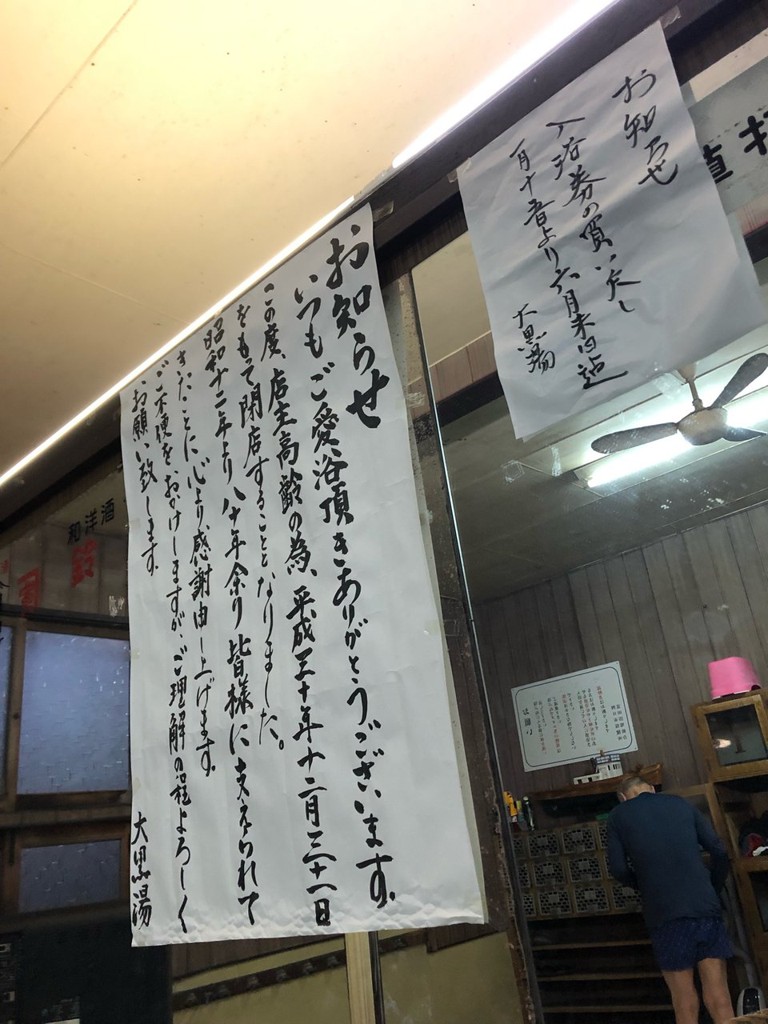 お知らせ
入浴券の買い戻し
一月十五日より六月末日迄
大黒湯
お知らせ
いつもご愛浴頂きありがとうございます。
この度、店主高齢の為、平成三十年十二月三十一日
をもって閉店することとなりました。
昭和十二年より八十年余り皆様に支えられて
きたことに心より感謝申し上げます。
ご不便をおかけしますが、ご理解の程よろしく
お願い致します。
大黒湯
和洋酒
鈴
司